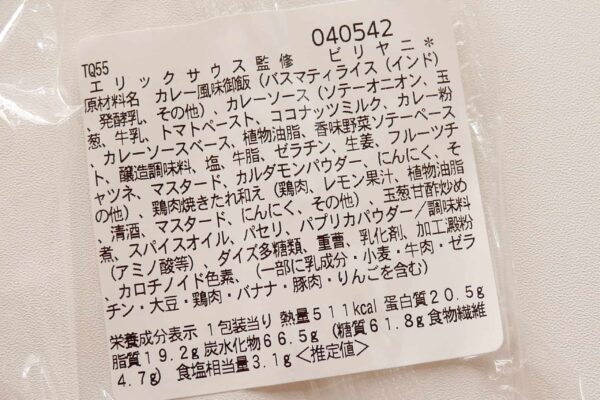 040542
TQ55
エリックサウス監修 ビリヤニ*
原材料名 カレー風味御飯（バスマティライス（インド）
、発酵乳、その他）、カレーソース（ソテーオニオン、玉
葱、牛乳、トマトペースト、ココナッツミルク、カレー粉
、カレーソースベース、植物油脂、香味野菜ソテーペース
ト、醸造調味料、塩、牛脂、ゼラチン、生姜、フルーツチ
ャツネ、マスタード、カルダモンパウダー、にんにく、そ
の他）、鶏肉焼きたれ和え（鶏肉、レモン果汁、植物油脂
、清酒、マスタード、にんにく、その他）、玉葱甘酢炒め
煮、スパイスオイル、パセリ、パプリカパウダー／調味料
（アミノ酸等）、ダイズ多糖類、重曹、乳化剤、加工澱粉
、カロチノイド色素、（一部に乳成分・小麦・牛肉・ゼラ
チン・大豆・鶏肉・バナナ・豚肉・りんごを含む）
栄養成分表示 1包装当り 熱量511kcal 蛋白質20.5g
脂質19.2g 炭水化物66.5g（糖質61.8g 食物繊維
4.7g） 食塩相当量3.1g＜推定値＞